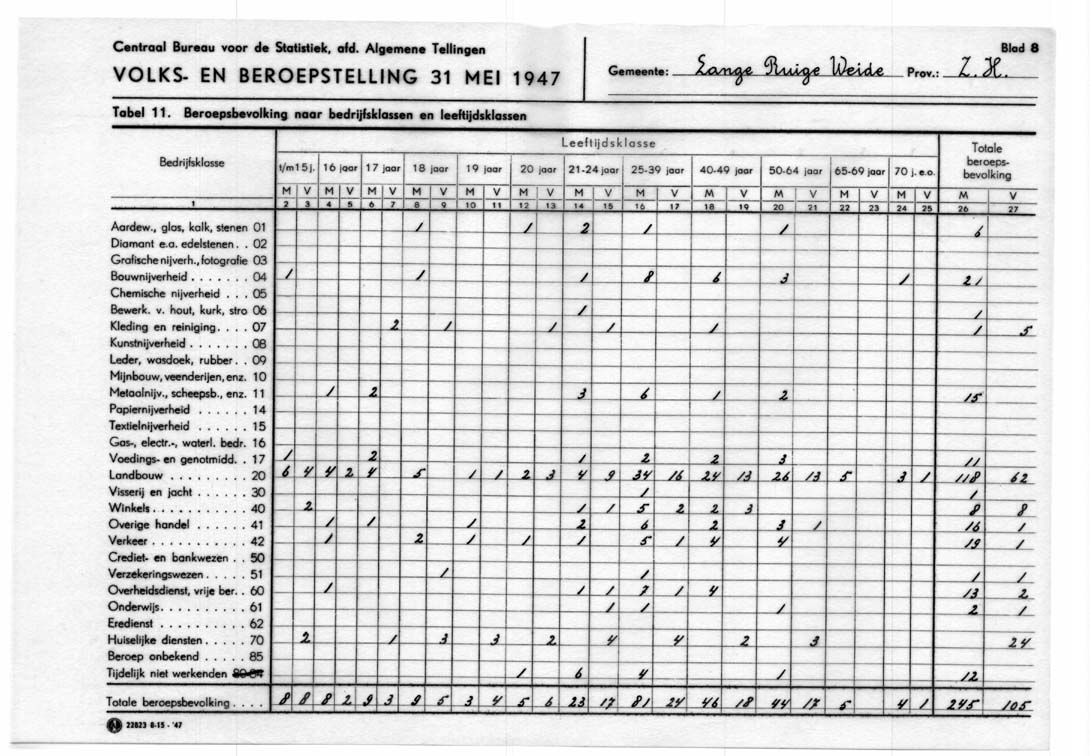 Centraal Bureau voor de Statistiek, afd. Algemene Tellingen
VOLKS- EN BEROEPSTELLING 31 MEI 1947
Gemeente: Lange Ruige Weide Prov.: Z. H.
Blad 8
Tabel 11. Beroepsbevolking naar bedrijfsklassen en leeftijdsklassen
Bedrijfsklasse Leeftijdsklasse Totale beroeps- bevolking
t/m 15 j. 16 jaar 17 jaar 18 jaar 19 jaar 20 jaar 21-24 jaar 25-39 jaar 40-49 jaar 50-64 jaar 65-69 jaar 70 j. e.o.
M V M V M V M V M V M V M V M V M V M V M V M V M V
1 2 3 4 5 6 7 8 9 10 11 12 13 14 15 16 17 18 19 20 21 22 23 24 25 26 27
Aardew., glas, kalk, stenen 01 1 1 2 1 1 6
Diamant e.a. edelstenen . . 02
Grafische nijverh., fotografie 03
Bouwnijverheid . . . . . . . 04 1 1 1 8 6 3 1 21
Chemische nijverheid . . . 05
Bewerk. v. hout, kurk, stro 06 1 1
Kleding en reiniging. . . . 07 2 1 1 1 1 1 5
Kunstnijverheid . . . . . . . 08
Leder, wasdoek, rubber. . 09
Mijnbouw, veenderijen, enz. 10
Metaalnijv., scheepsb., enz. 11 1 2 3 6 1 2 15
Papiernijverheid . . . . . . 14
Textielnijverheid . . . . . . 15
Gas-, electr.-, waterl. bedr. 16
Voedings- en genotmidd. . 17 1 2 1 2 2 3 11
Landbouw . . . . . . . . . 20 6 4 4 2 4 5 1 1 2 3 4 9 34 16 24 13 26 13 5 3 1 118 62
Visserij en jacht . . . . . . 30 1 1
Winkels . . . . . . . . . . . 40 2 1 1 5 2 2 3 8 8
Overige handel . . . . . . 41 1 1 1 2 6 2 3 1 16 1
Verkeer . . . . . . . . . . . 42 1 2 1 1 1 5 1 4 4 19 1
Crediet- en bankwezen . . 50
Verzekeringswezen . . . . . 51 1 1 1 1
Overheidsdienst, vrije ber. . 60 1 1 1 7 1 4 13 2
Onderwijs. . . . . . . . . . 61 1 1 1 2 1
Eredienst . . . . . . . . . . 62
Huiselijke diensten . . . . . 70 2 1 3 3 2 4 4 2 3 24
Beroep onbekend . . . . . 85
Tijdelijk niet werkenden 80-84 1 6 4 1 12
Totale beroepsbevolking . . . . 8 8 8 2 9 3 9 5 3 4 5 6 23 17 81 24 46 18 44 17 5 4 1 245 105
22823 8-15 - '47